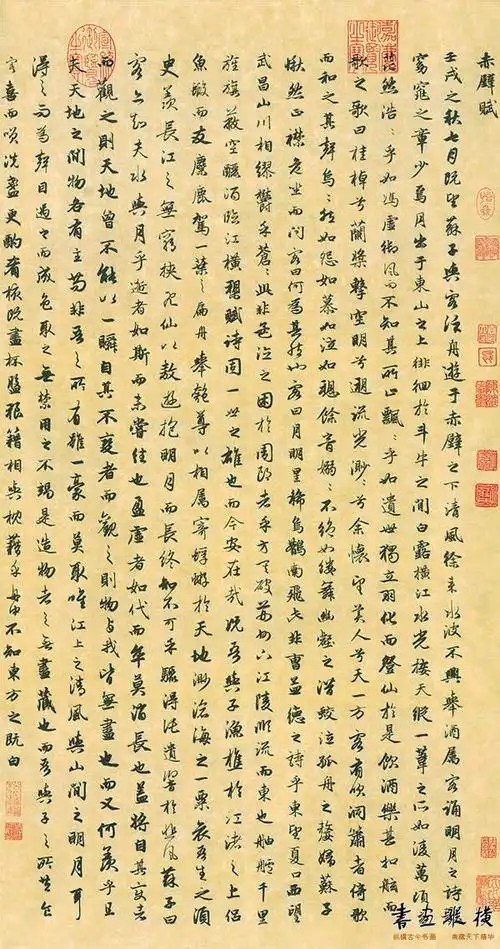 赤壁賦
壬戌之秋七月既望蘇子與客泛舟遊于赤壁之下清風徐來水波不興舉酒屬客誦明月之詩
窈窕之章少焉月出于東山之上徘徊於斗牛之間白露橫江水光接天縱一葦之所如淩萬頃
茫然浩〻乎如馮虛御風而不知其所止飄〻乎如遺世獨立羽化而登仙於是飲酒樂甚扣舷而
歌之歌曰桂棹兮蘭槳擊空明兮遡流光渺〻兮余懷望美人兮天一方客有吹洞簫者倚歌
而和之其聲烏〻然如怨如慕如泣如愬餘音嫋〻不絕如縷舞幽壑之潛蛟泣孤舟之嫠婦蘇子
愀然正襟危坐而問客曰何為其然也客曰月明星稀烏鵲南飛此非曹孟德之詩乎東望夏口西望
武昌山川相繆鬱乎蒼〻此非孟德之困於周郎者乎方其破荊州下江陵順流而東也舳艫千里
旌旗蔽空釃酒臨江橫槊賦詩固一世之雄也而今安在哉況吾與子漁樵於江渚之上侶
魚蝦而友麋鹿駕一葉之扁舟舉匏尊以相屬寄蜉蝣於天地渺滄海之一粟哀吾生之須
臾羨長江之無窮挾飛仙以遨遊抱明月而長終知不可乎驟得託遺響於悲風蘇子曰
客亦知夫水與月乎逝者如斯而未嘗往也盈虛者如代而卒莫消長也蓋將自其變者
而觀之則天地曾不能以一瞬自其不變者而觀之則物與我皆無盡也而又何羨乎且
夫天地之間物各有主苟非吾之所有雖一豪而莫取唯江上之清風與山間之明月耳
得之而為聲目遇之而成色取之無禁用之不竭是造物者之無盡藏也而吾與子之所共食
客喜而笑洗盞更酌肴核既盡杯盤狼藉相與枕藉乎舟中不知東方之既白
書画縱橫
纵横古今书画 典藏天下精华